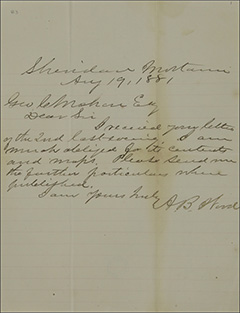 Sheridan Montana
Aug 19, 1881
Geo C Mahon Esq
Dear Sir
I received your letter
of the 2nd last evening I am
much obliged for its contents
and maps. Please send me
the further particulars when
published.
I am Yours truly
A. B. Wood